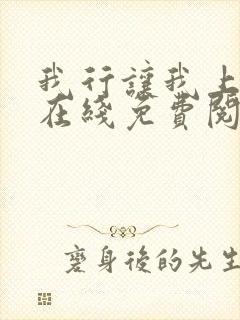 我行讓我上
在綫免費閱
襃身後的先生